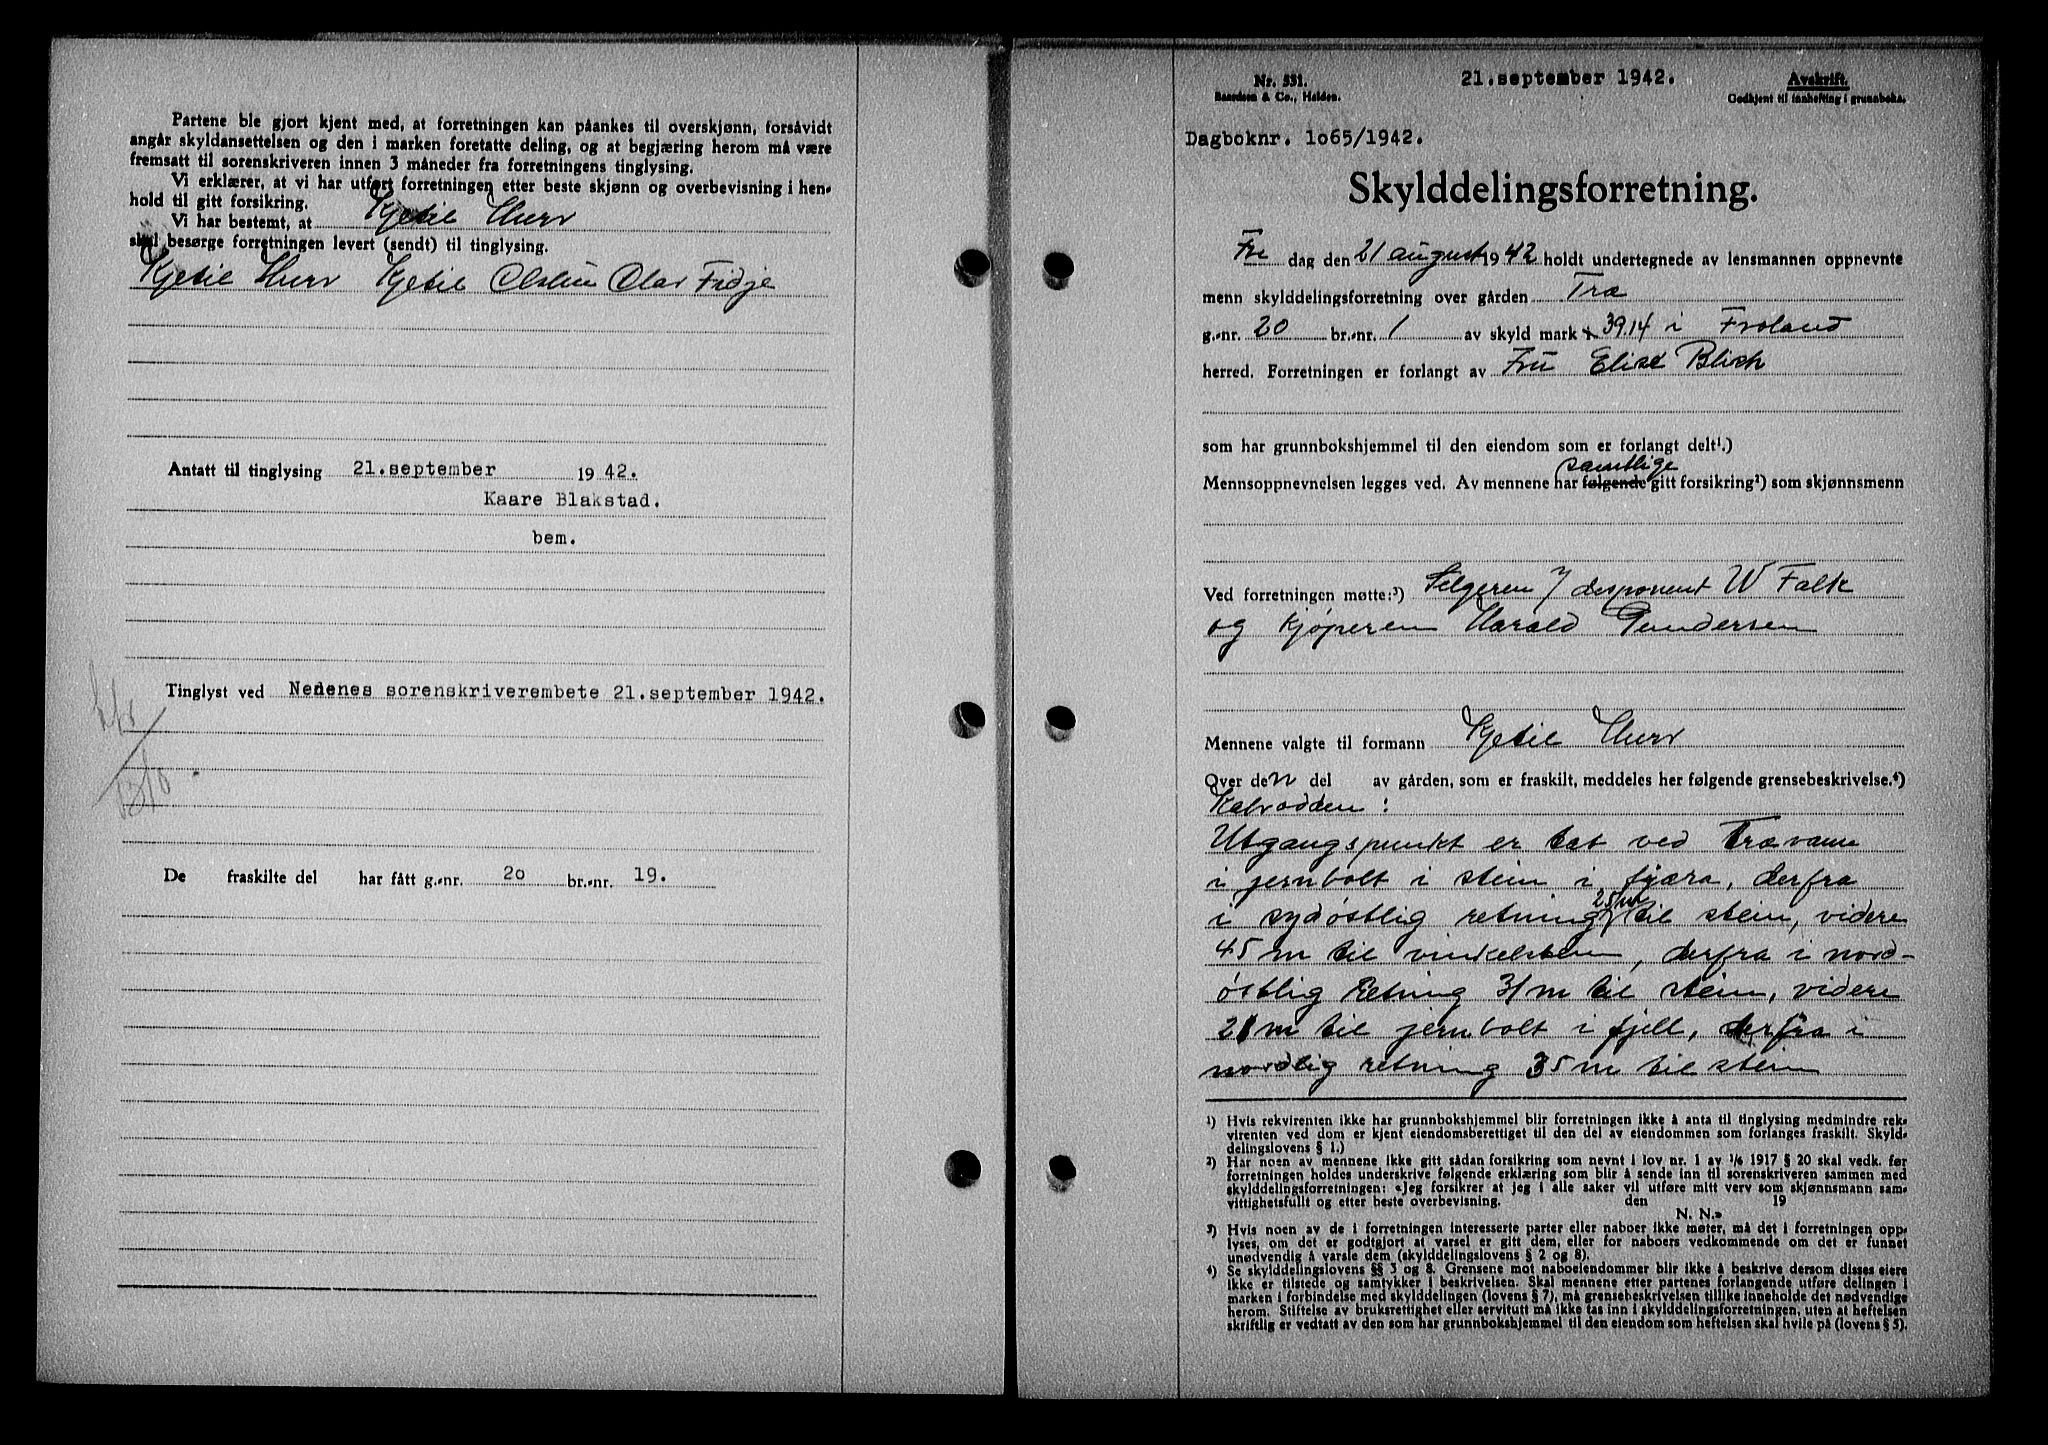 Partene ble gjort kjent med, at forretningen kan påankes til overskjønn, forsåvidt
angår skyldansettelsen og den i marken foretatte deling, og at begjæring herom må være
fremsatt til sorenskriveren innen 3 måneder fra forretningens tinglysing.
Vi erklærer, at vi har utført forretningen etter beste skjønn og overbevisning i hen-
hold til gitt forsikring.
Vi har bestemt, at Kjetil Hurv
skal besørge forretningen levert (sendt) til tinglysing.
Kjetil Hurv Kjetil Olav Fidje
Antatt til tinglysing 21.september 1942.
Kaare Blakstad.
bem.
Tinglyst ved Nedenes sorenskriverembete 21.september 1942.
De fraskilte del har fått g.-nr. 20 br.-nr. 19.
Nr. 531.
Baardsen & Co., Halden.
21.september 1942.
Avskrift.
Godkjent til innhefting i grunnboka.
Dagboknr. 1o65/1942.
Skylddelingsforretning.
Fre dag den 21 august 1942 holdt undertegnede av lensmannen oppnevnte
menn skylddelingsforretning over gården Træ
g.-nr. 20 br.-nr. 1 av skyld mark 39.14 i Froland
herred. Forretningen er forlangt av Fru Elise Blich
som har grunnbokshjemmel til den eiendom som er forlangt delt¹.)
samtlige
Mennsoppnevnelsen legges ved. Av mennene har følgende gitt forsikring²) som skjønnsmenn
Ved forretningen møtte:³) Selgeren v/ desponent W Falk
og kjøperen Harald Gundersen
Mennene valgte til formann Kjetil Hurv
Over den del av gården, som er fraskilt, meddeles her følgende grensebeskrivelse.⁴)
Kalvodden:
Utgangspunkt er tat ved Trævann
i jernbolt i stein i fjæra, derfra
i sydøstlig retning 25 m til stein, videre
45 m til vinkelstein, derfra i nord-
østlig retning 31 m til stein, videre
21 m til jernbolt i fjell, derfra i
nordlig retning 35 m til stein
¹) Hvis rekvirenten ikke har grunnbokshjemmel blir forretningen ikke å anta til tinglysing medmindre rek-
virenten ved dom er kjent eiendomsberettiget til den del av eiendommen som forlanges fraskilt. Skyld-
delingslovens § 1.)
²) Har noen av mennene ikke gitt sådan forsikring som nevnt i lov nr. 1 av 1/6 1917 § 20 skal vedk. før
forretningen holdes underskrive følgende erklæring som blir å sende inn til sorenskriveren sammen med
skylddelingsforretningen: «Jeg forsikrer at jeg i alle saker vil utføre mitt verv som skjønnsmann sam-
vittighetsfullt og etter beste overbevisning. den 19
N. N.»
³) Hvis noen av de i forretningen interesserte parter eller naboer ikke møter, må det i forretningen opp-
lyses, om det er godtgjort at varsel er gitt dem, eller for naboers vedkommende om det er funnet
unødvendig å varsle dem (skylddelingslovens § 2 og 8).
⁴) Se skylddelingslovens §§ 3 og 8. Grensene mot naboeiendommer blir ikke å beskrive dersom disses eiere
ikke er tilstede og samtykker i beskrivelsen. Skal mennene etter partenes forlangende utføre delingen i
marken i forbindelse med skylddelingen (lovens § 7), må grensebeskrivelsen tillike inneholde det nødvendige
herom. Stiftelse av bruksrettighet eller servitutt må ikke tas inn i skylddelingsforretningen, uten at heftelsen
skriftlig er vedtatt av den som har grunnbokshjemmel til den eiendom som heftelsen skal hvile på (lovens § 5).